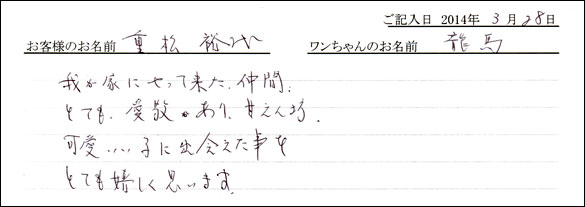 ご記入日 2014年 3月28日
お客様のお名前 重松 裕代 ワンちゃんのお名前 龍馬
我が家にやって来た、仲間、
とても、愛敬があり、甘えん坊、
可愛いい子に出会えた事を
とても嬉しく思います。